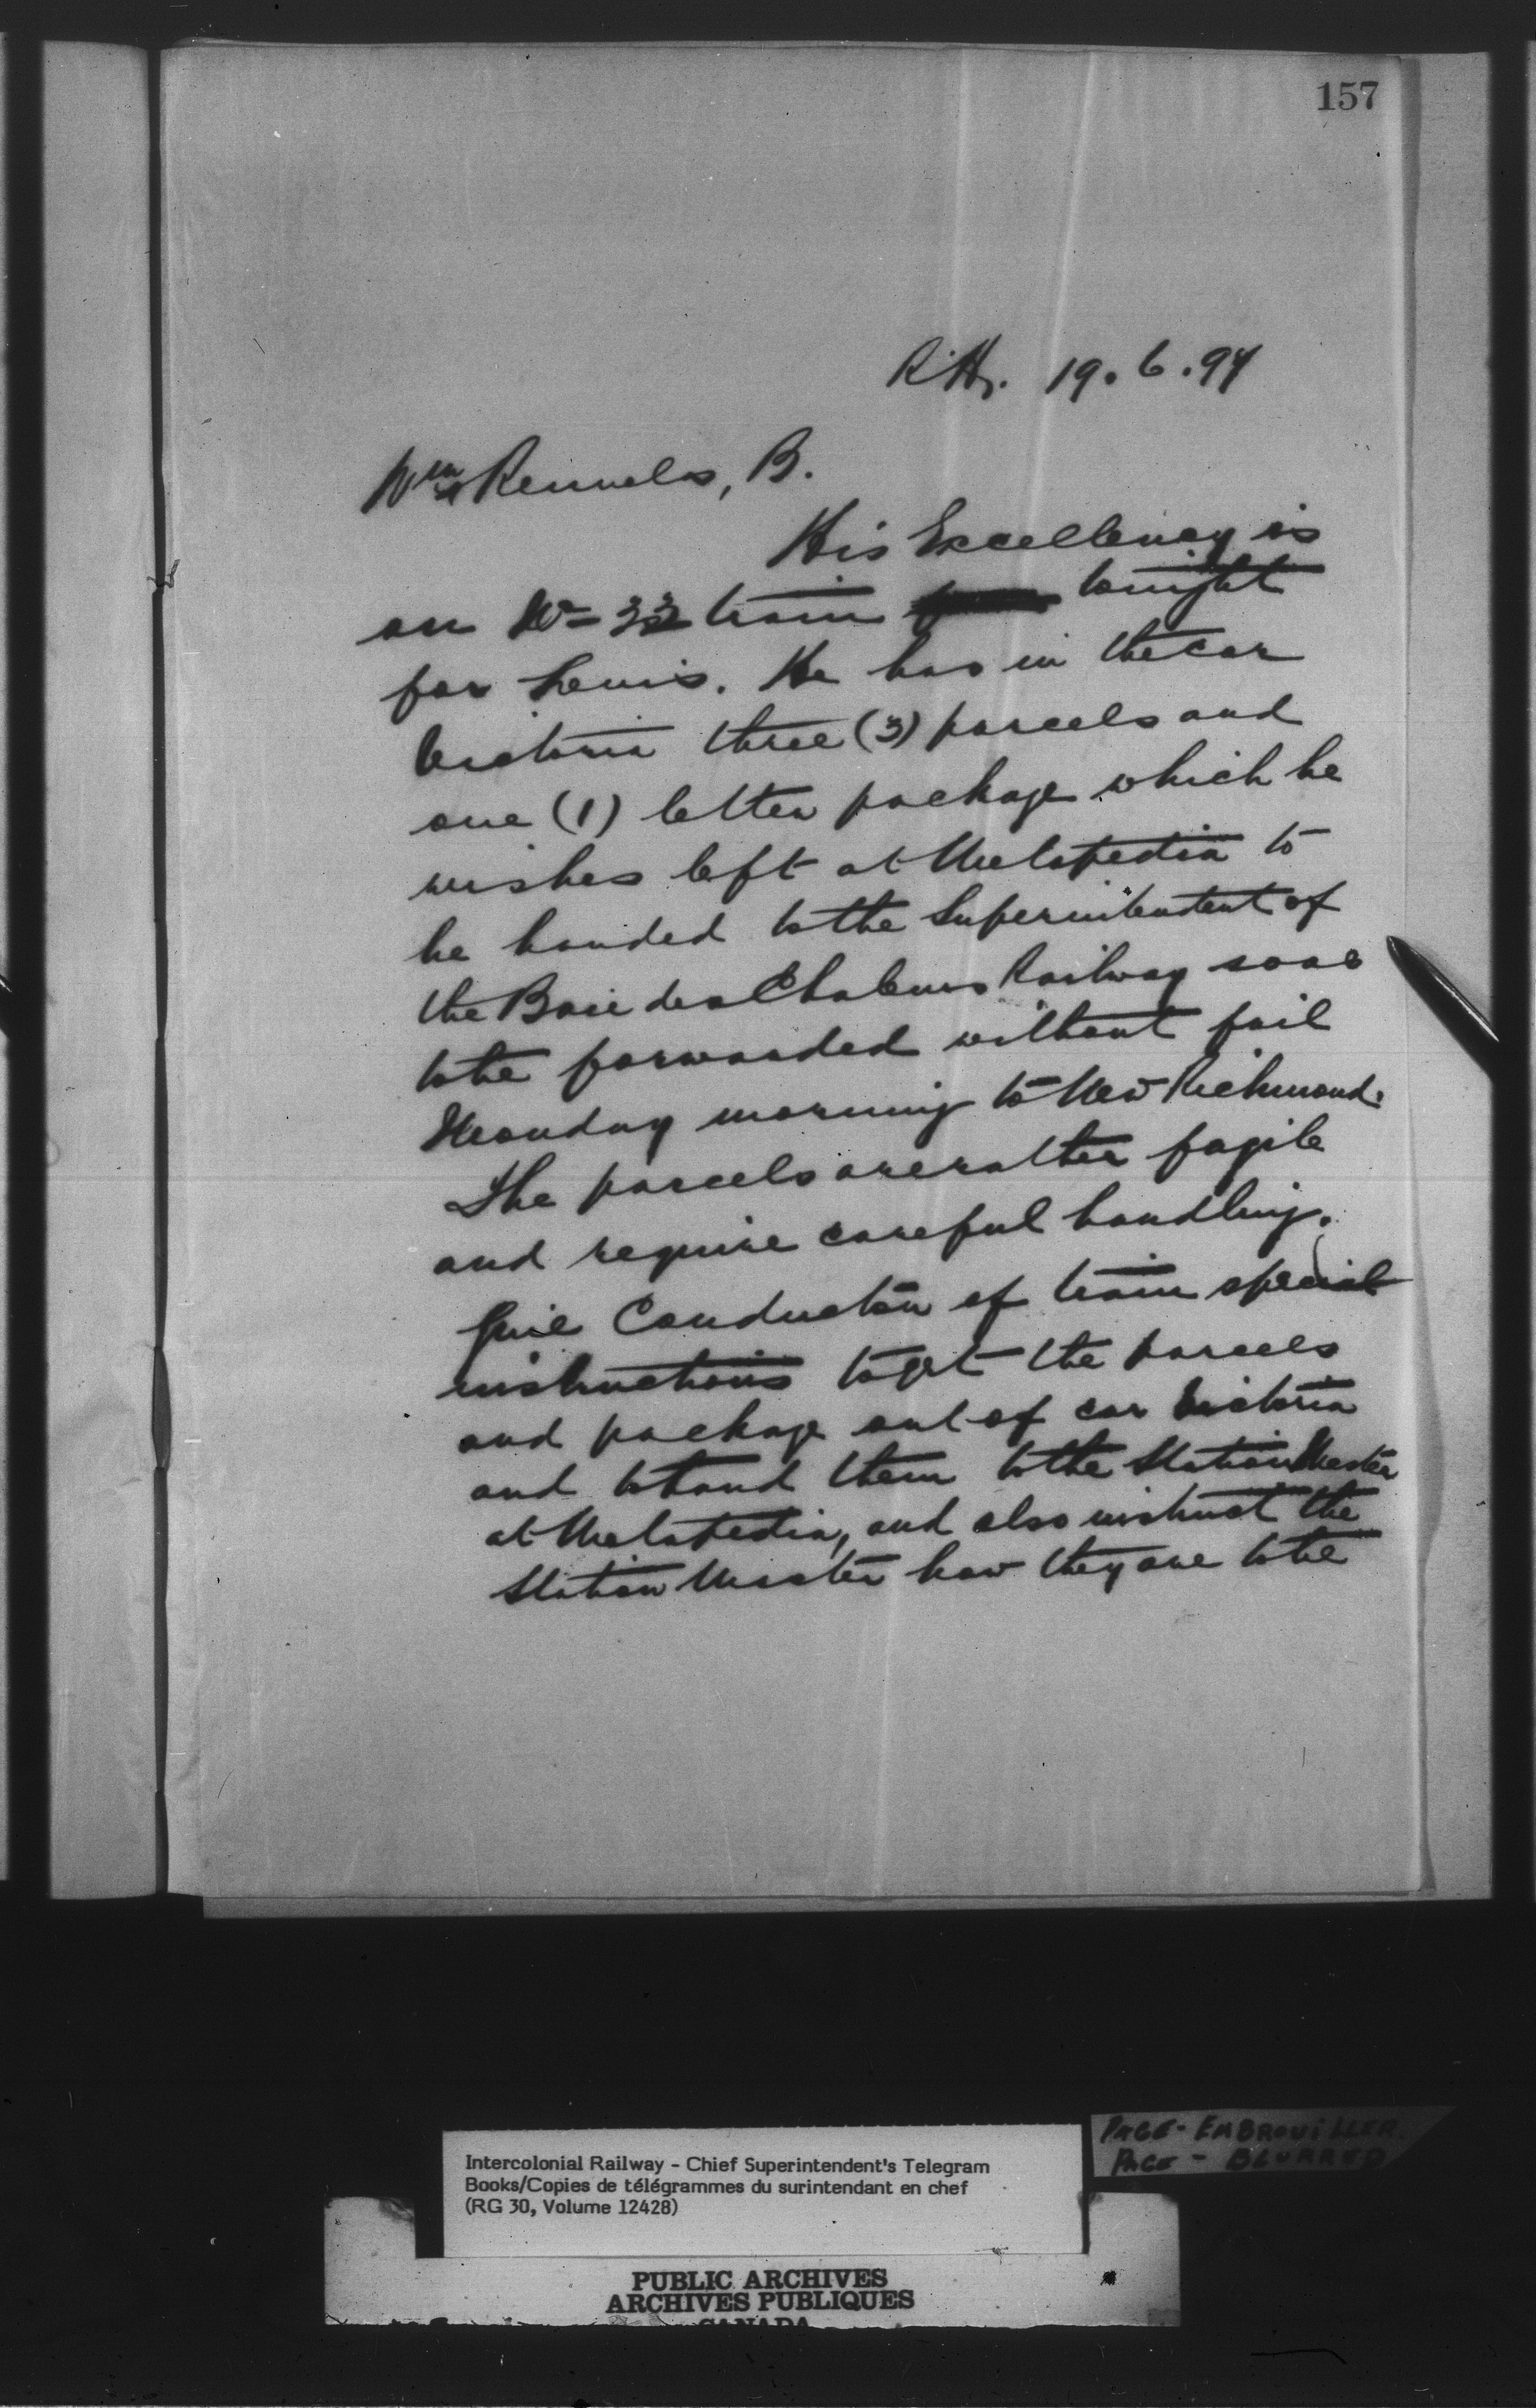 157
19.6.97
Wm Rennels, B.
His Excellency is
on No 33 train tonight
for Levis. He has in the car
Victoria three (3) parcels and
one (1) letter package which he
wishes left at Metapedia to
be handed to the Superintendent of
the Baie des Chaleurs Railway so as
to be forwarded without fail
Monday morning to New Richmond.
The parcels are rather fragile
and require careful handling.
Give Conductor of train special
instructions to get the parcels
and package out of car Victoria
and to hand them to the Station Master
at Metapedia, and also instruct the
Station Master how they are to be
PAGE - EMBROUILLER
PAGE - BLURRED
Intercolonial Railway - Chief Superintendent's Telegram
Books/Copies de télégrammes du surintendant en chef
(RG 30, Volume 12428)
PUBLIC ARCHIVES
ARCHIVES PUBLIQUES
CANADA